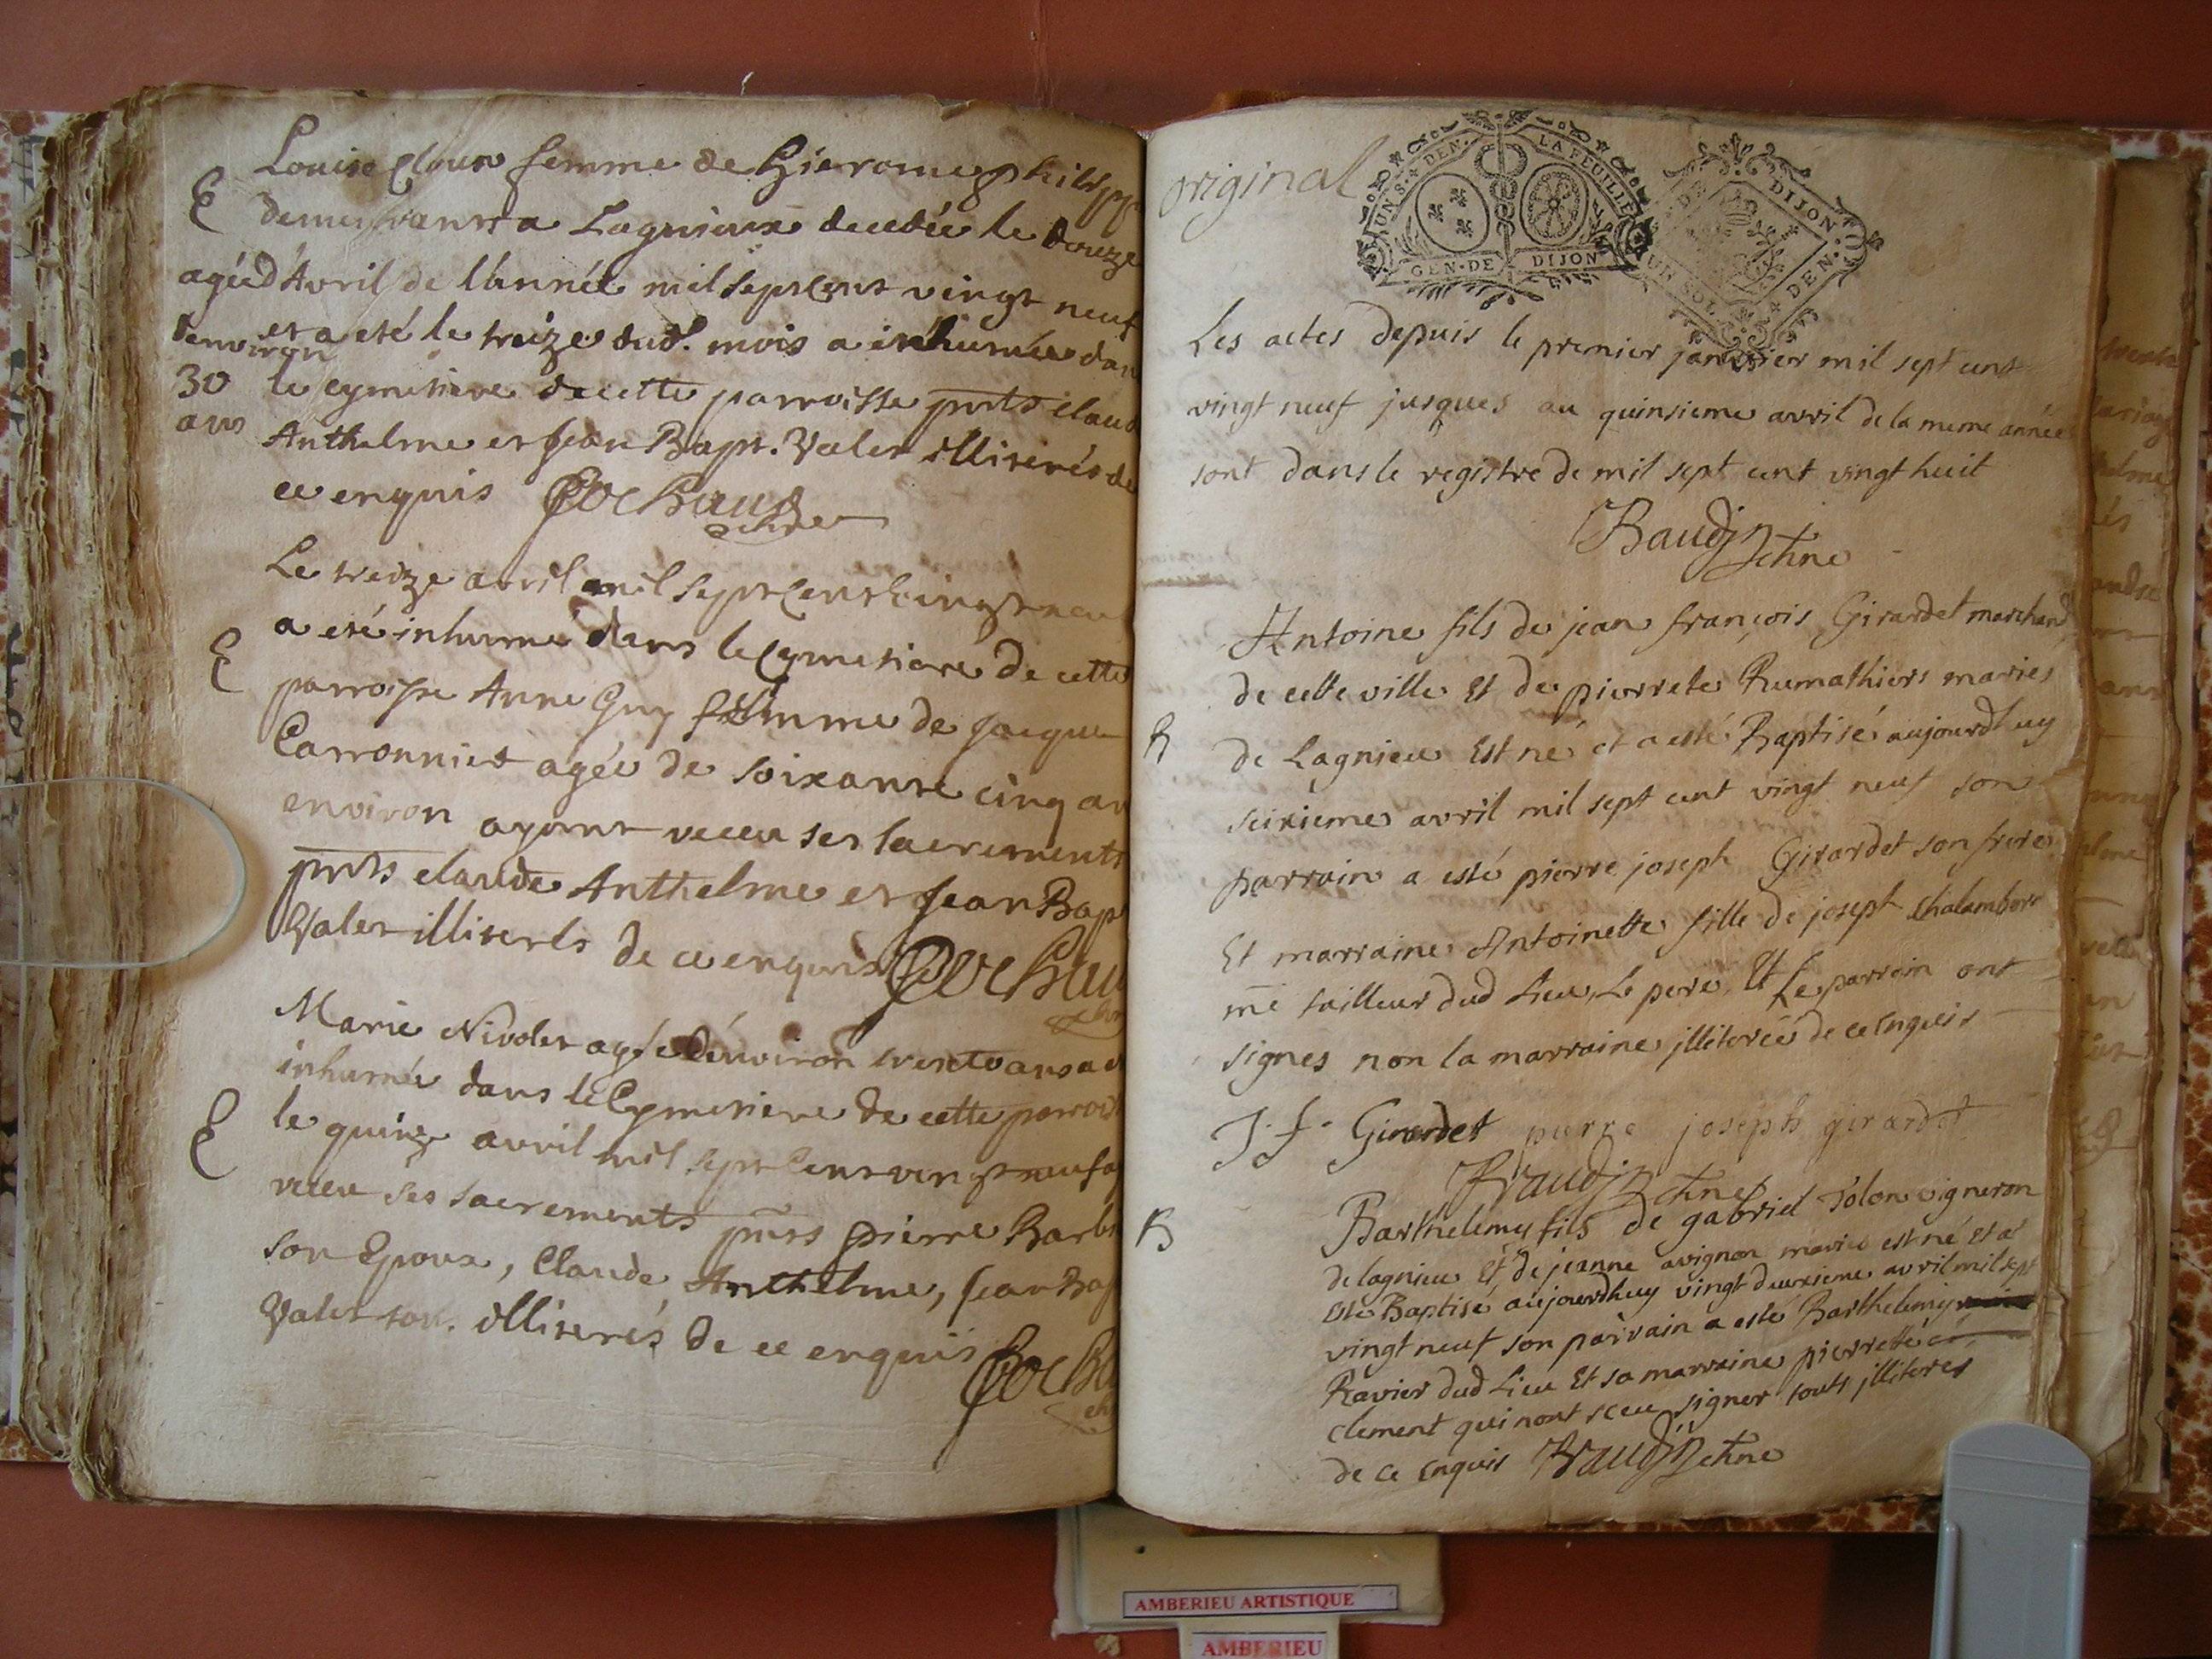 Louise femme de hierome philipp
E demeurante a Lagnieux decedée le douze
agée d'Avril de l'année mil sept cent vingt neuf
denviron et a eté le treize dud. mois a inhumée dan
30 le cymetiere de cette parroisse pnts claud
ans Anthelme et Jean Bapt. Valet illiterés de
ce enquis Cochaud
Le treize avril mil sept cent vingt neuf
a eté inhumé dans le cymetiere de cette
E parroisse Anne Guy femme de Jacque
Carronnier agée de soixante cinq an
environ ayant receu ses sacrements
pnts claude Anthelme et Jean Bapt
Valet illiterés de ce enquis Cochau
Marie Nivolet agée d'environ trente ans a e
inhumée dans le Cymetiere de cette parroi
E le quinze avril mil sept cent vingt neuf a
receu ses sacrements pnts pierre Barb
son Epoux, Claude Anthelme, Jean Bap
Valet illiterés de ce enquis Coch
original
UN S. DEN. LA FEUILLE
GEN. DE DIJON
DE DIJON
UN SOL DEN.
Les actes depuis le premier janvier mil sept cent
vingt neuf jusques au quinsieme avril de la meme année
sont dans le registre de mil sept cent vingt huit
Baudin
Antoine fils de jean françois Girardet marchand
de cette ville Et de pierrete Rumathiers mariés
B de Lagnieu Est né et a esté Baptisé aujourdhuy
seisieme avril mil sept cent vingt neuf son
parrain a esté pierre joseph Girardet son frere
Et marraine Antoinette fille de joseph Chalambore
me tailleur dud Lieu, Le pere Et Le parrain ont
signes non la marraine illiterée de ce Enquis
J. f. Girardet pierre joseph girardet
Baudin
B Barthelemy fils de gabriel Tolon vigneron
de lagnieu Et de jeanne avignon mariés est né Et a
Esté Baptisé aujourdhuy vingt deuxieme avril mil sept
vingt neuf son parrain a esté Barthelemy
Ravier dud Lieu Et sa marraine pierrette
clement qui nont sceu signer touts illiteres
de ce Enquis Baudin
AMBERIEU ARTISTIQUE
AMBERIEU